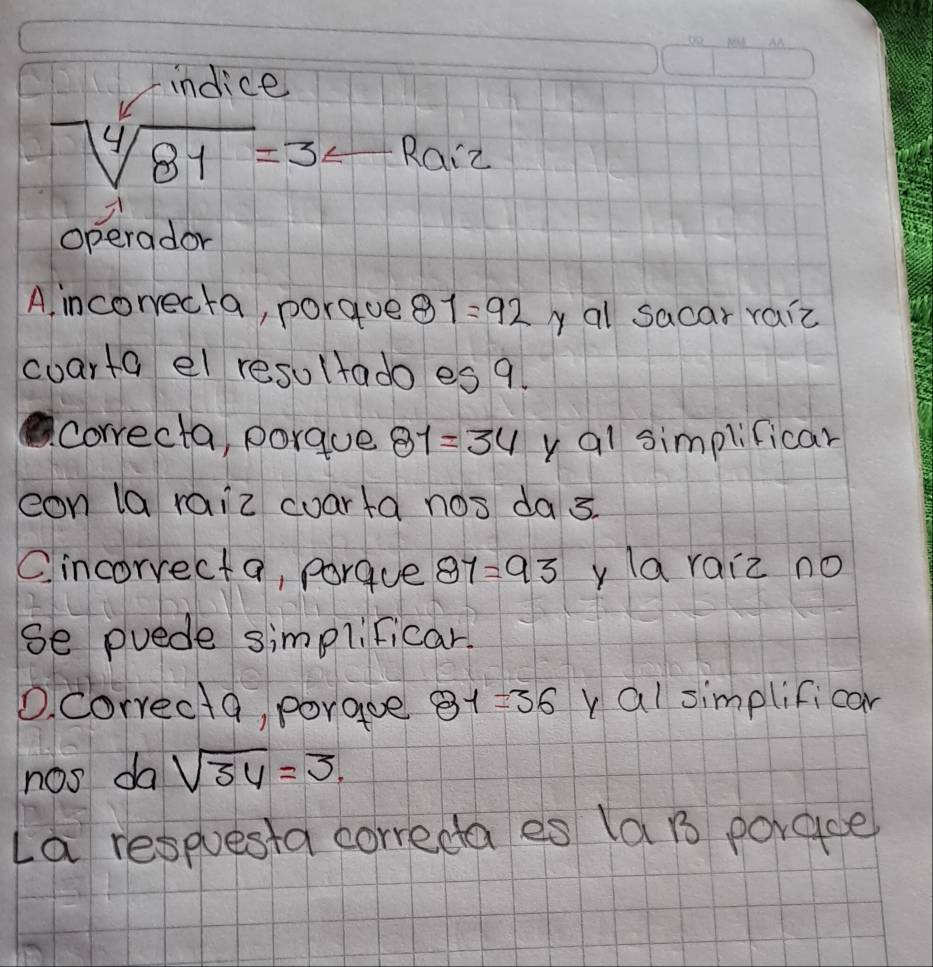 indice
∜81 = 3 ← Raíz
operador
A. incorrecta, porque 81=92 y al sacar raíz
cuarta el resultado es 9.
correcta, porque 81=34 y al simplificar
con la raiz cuarta nos da 3.
C. incorrecta, porque 81=93 y la raíz no
se puede simplificar.
D. Correcta, porque 81=36 y al simplificar
nos da √34 = 3.
La respuesta correcta es la B porque